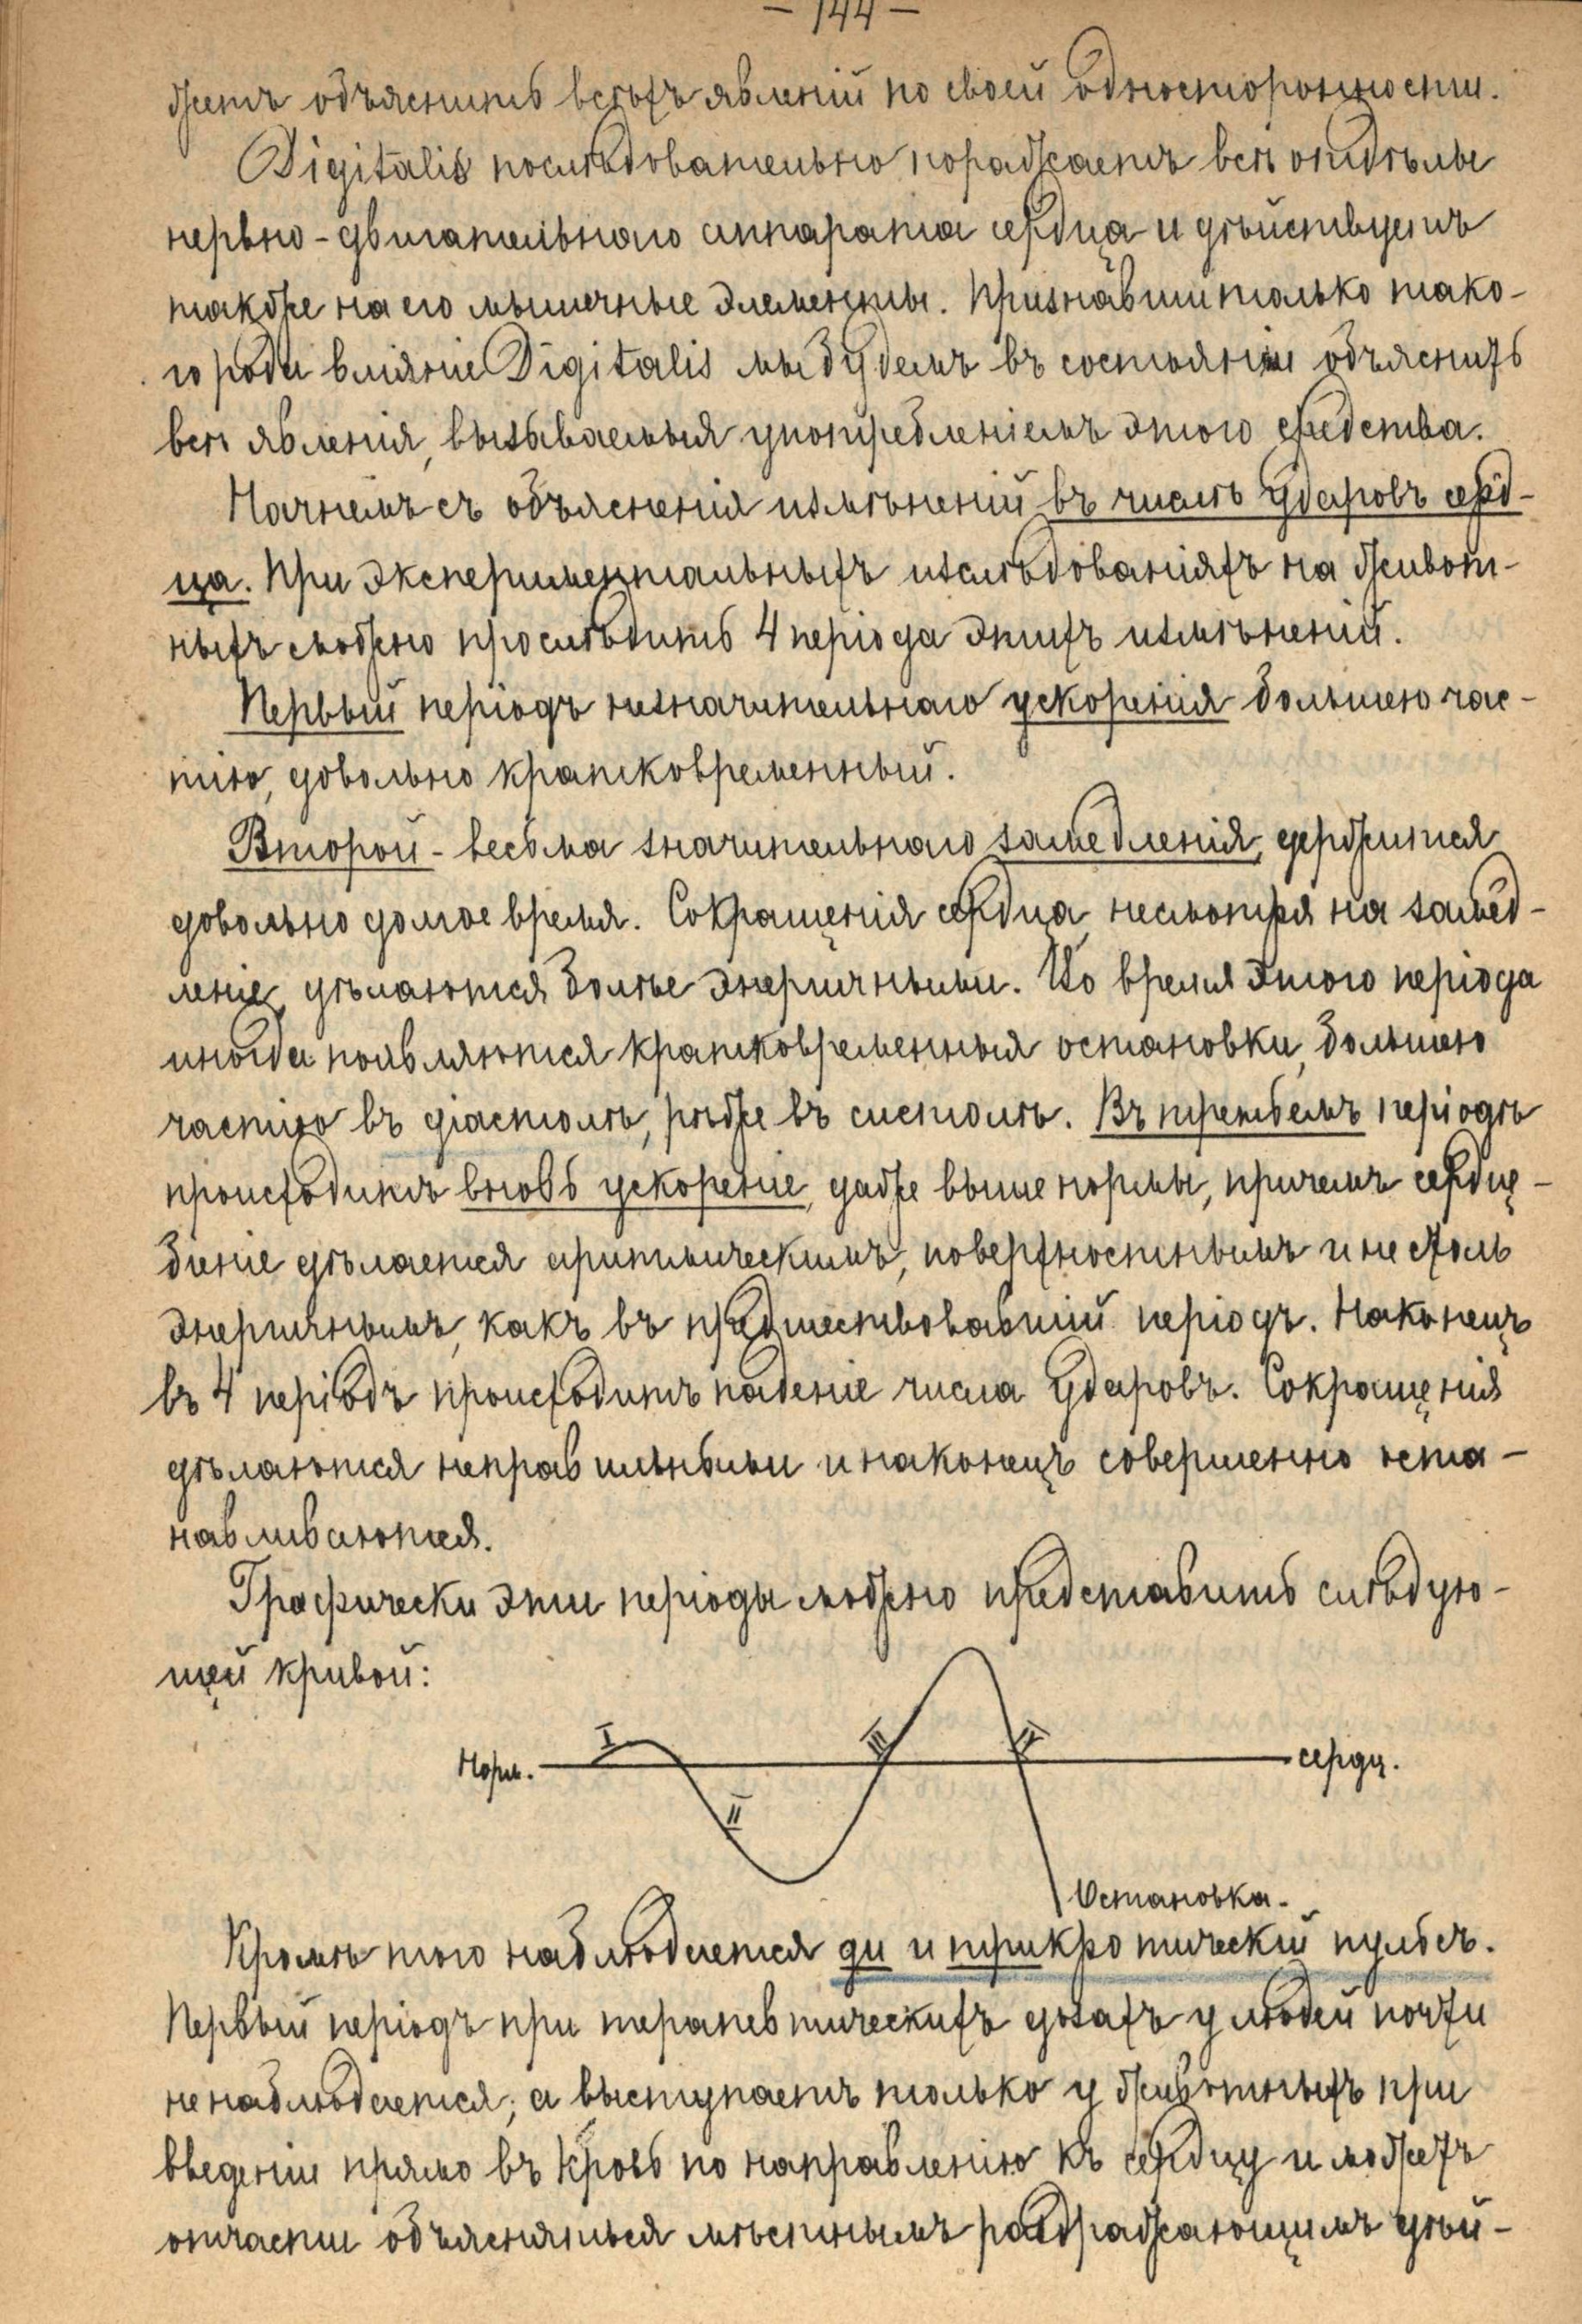 – 144 –
жетъ объяснить всѣхъ явленій по своей односторонности.
Digitalis послѣдовательно поражаетъ всѣ отдѣлы
нервно-двигательнаго аппарата сердца и дѣйствуетъ
также на его мышечные элементы. Признавши только тако-
го рода вліяніе Digitalis мы будемъ въ состояніи объяснить
всѣ явленія, вызываемыя употребленіемъ этого средства.
Начнемъ съ объясненія измѣненій въ числѣ ударовъ серд-
ца. При экспериментальныхъ изслѣдованіяхъ на живот-
ныхъ можно прослѣдить 4 періода этихъ измѣненій.
Первый періодъ незначительнаго ускоренія большею час-
тію, довольно кратковременный.
Второй - весьма значительнаго замедленія, держится
довольно долгое время. Сокращенія сердца, несмотря на замед-
леніе, дѣлаются болѣе энергичными. Во время этого періода
иногда появляются кратковременныя остановки, большею
частію въ діастолѣ, рѣже въ систолѣ. Въ третьемъ періодѣ
происходитъ вновь ускореніе, даже выше нормы, причемъ сердце-
біеніе дѣлается аритмическимъ, поверхностнымъ и не столь
энергичнымъ, какъ въ предшествовавшій періодъ. Наконецъ
въ 4 періодъ происходитъ паденіе числа ударовъ. Сокращенія
дѣлаются неправильными и наконецъ совершенно оста-
навливаются.
Графически эти періоды можно представить слѣдую-
щей кривой:
I III IV
Норм. сердц.
II
Остановка.
Кромѣ того наблюдается ди и трикротическій пульсъ.
Первый періодъ при терапевтическихъ дозахъ у людей почти
не наблюдается; а выступаетъ только у животныхъ при
введеніи прямо въ кровь по направленію къ сердцу и можетъ
отчасти объясняться мѣстнымъ раздражающимъ дѣй-